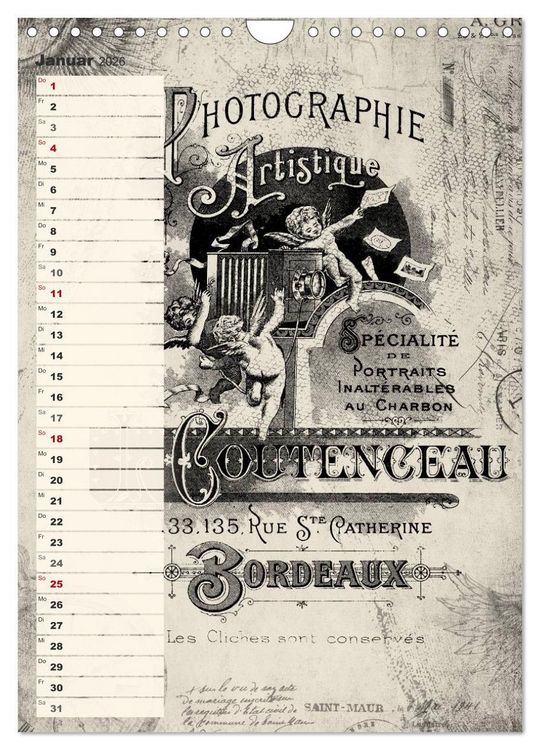 Januar 2026
Do 1
Fr 2
Sa 3
So 4
Mo 5
Di 6
Mi 7
Do 8
Fr 9
Sa 10
So 11
Mo 12
Di 13
Mi 14
Do 15
Fr 16
Sa 17
So 18
Mo 19
Di 20
Mi 21
Do 22
Fr 23
Sa 24
So 25
Mo 26
Di 27
Mi 28
Do 29
Fr 30
Sa 31
A. GR
No
PHOTOGRAPHIE
Artistique
SPÉCIALITÉ
DE
PORTRAITS
INALTÉRABLES
AU CHARBON
COUTENCEAU
33,135, RUE STE CATHERINE
BORDEAUX
Les Cliches sont conservés
SAINT-MAUR